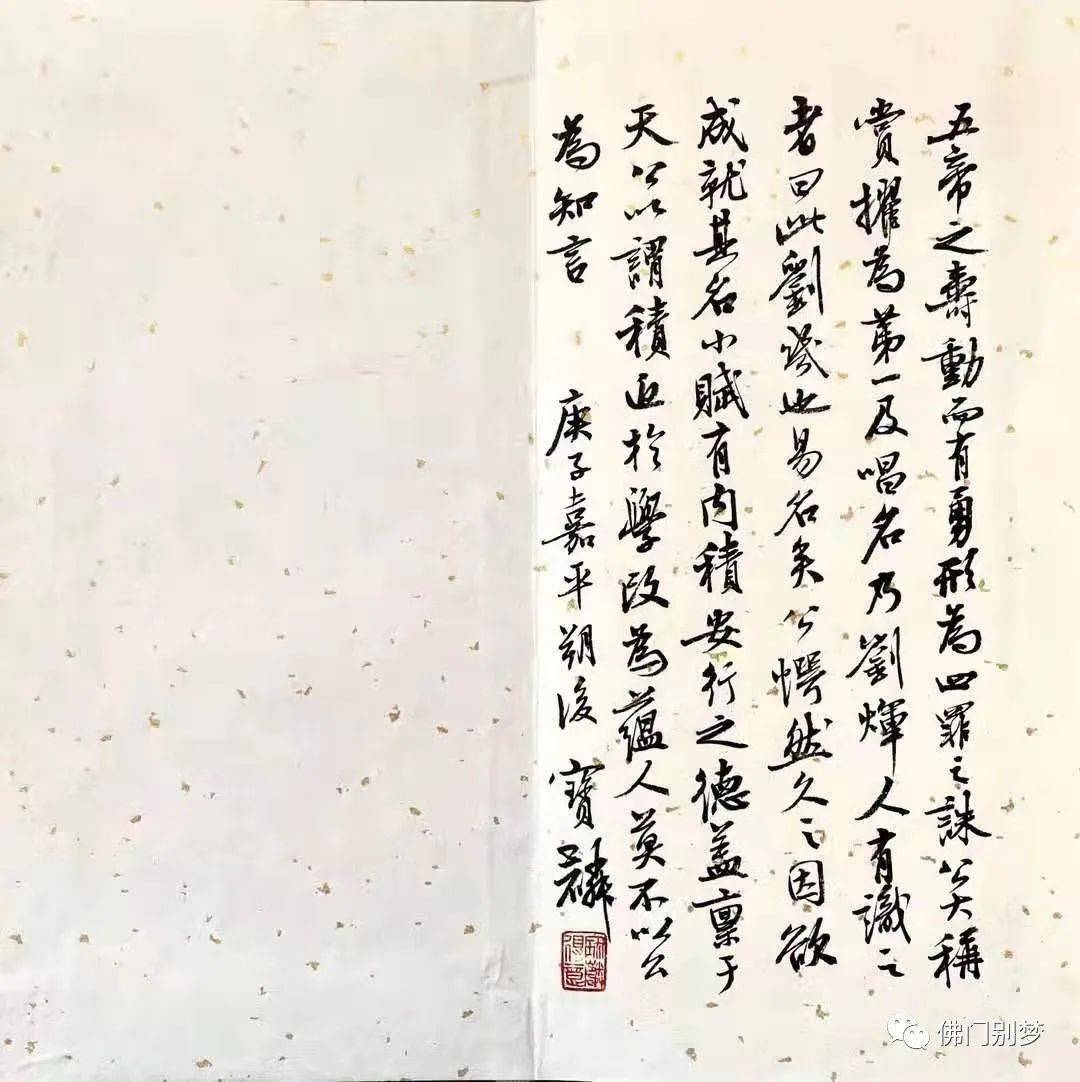 五帝之壽動而有勇形為四罪之誅公大稱
賞擢為第一及唱名乃劉煇人有識之
者曰此劉幾也易名矣公愕然久之因欲
成就其名小賦有内積安行之德蓋稟于
天公以謂積近於學改為蘊人莫不以公
為知言
庚子嘉平朔後 寶麟
佛门别梦